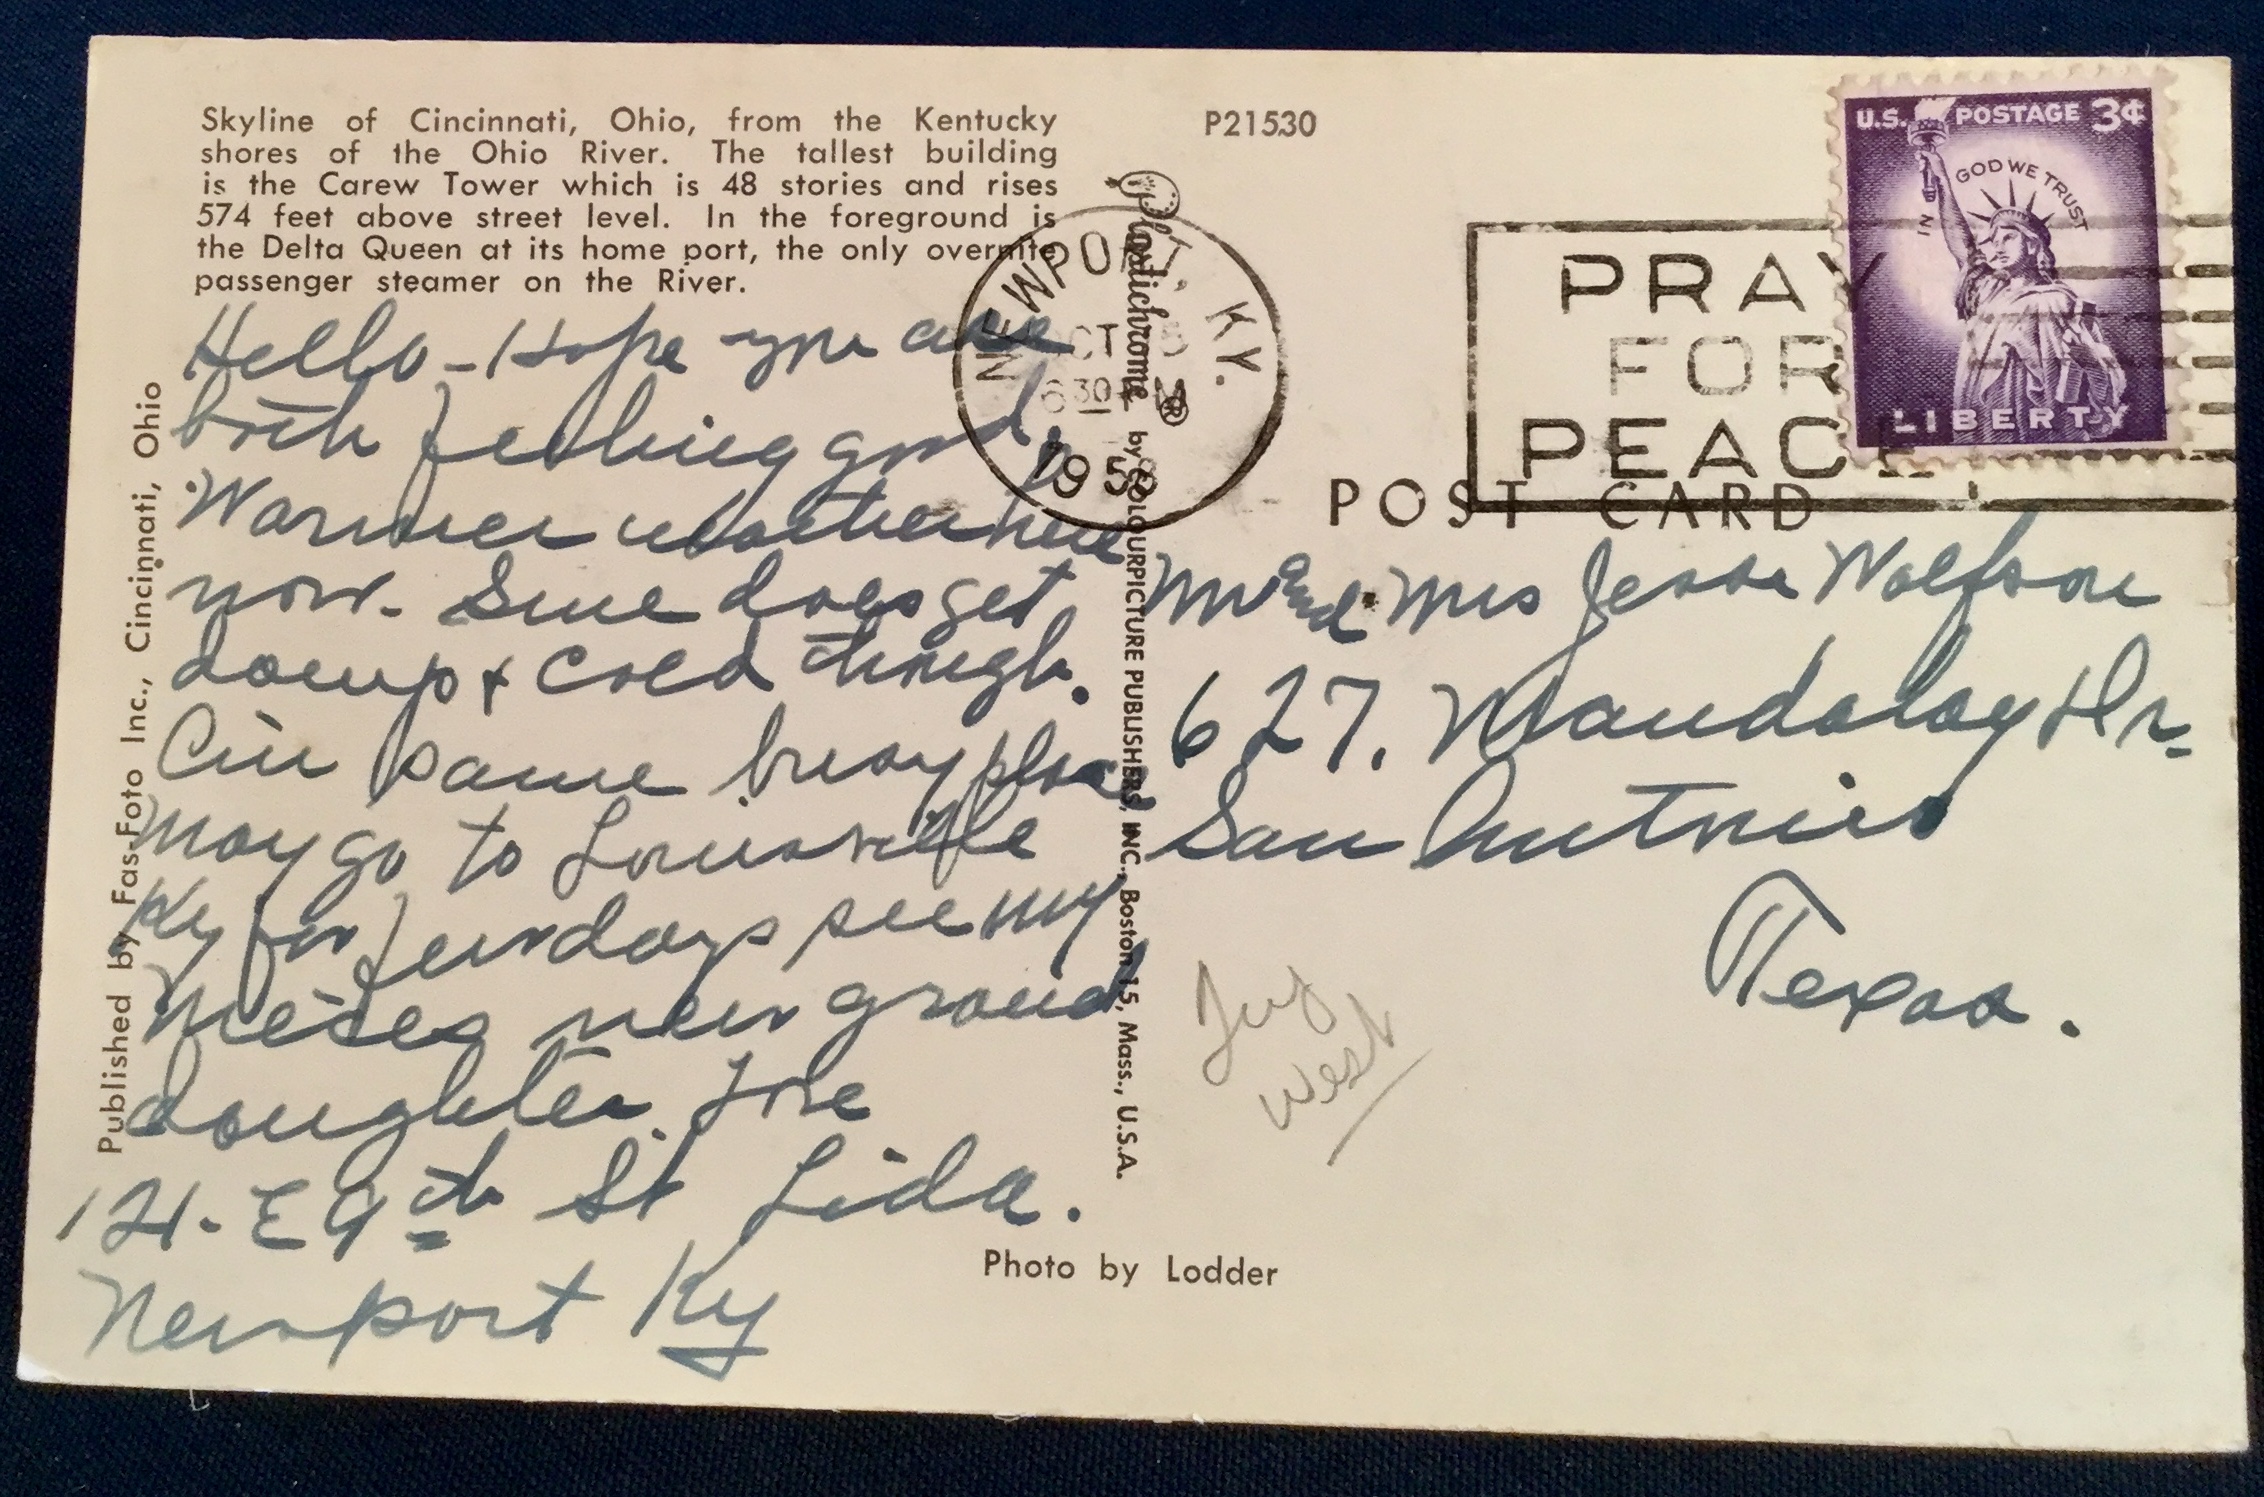 Skyline of Cincinnati, Ohio, from the Kentucky
shores of the Ohio River. The tallest building
is the Carew Tower which is 48 stories and rises
574 feet above street level. In the foreground is
the Delta Queen at its home port, the only overnite
passenger steamer on the River.
P21530
U.S. POSTAGE 3¢
IN GOD WE TRUST
LIBERTY
NEWPORT, KY.
OCT
6 30 M
195
PRAY
FOR
PEACE
POST CARD
Plastichrome ® by COLOURPICTURE PUBLISHERS, INC., Boston 15, Mass., U.S.A.
Published by Fas Foto Inc., Cincinnati, Ohio
Hello - Hope you are
both feeling good.
Warmer weather here
now. Sure does get
damp & cold though.
Cin same busy place
may go to Louisville
Ky for few days see my
nieces new grand
daughter. Love
121. E 9th St Lida.
Newport Ky
Mr and Mrs Jesse Wolfson
627. Mandalay Dr.
San Antonio
Texas.
West
Photo by Lodder